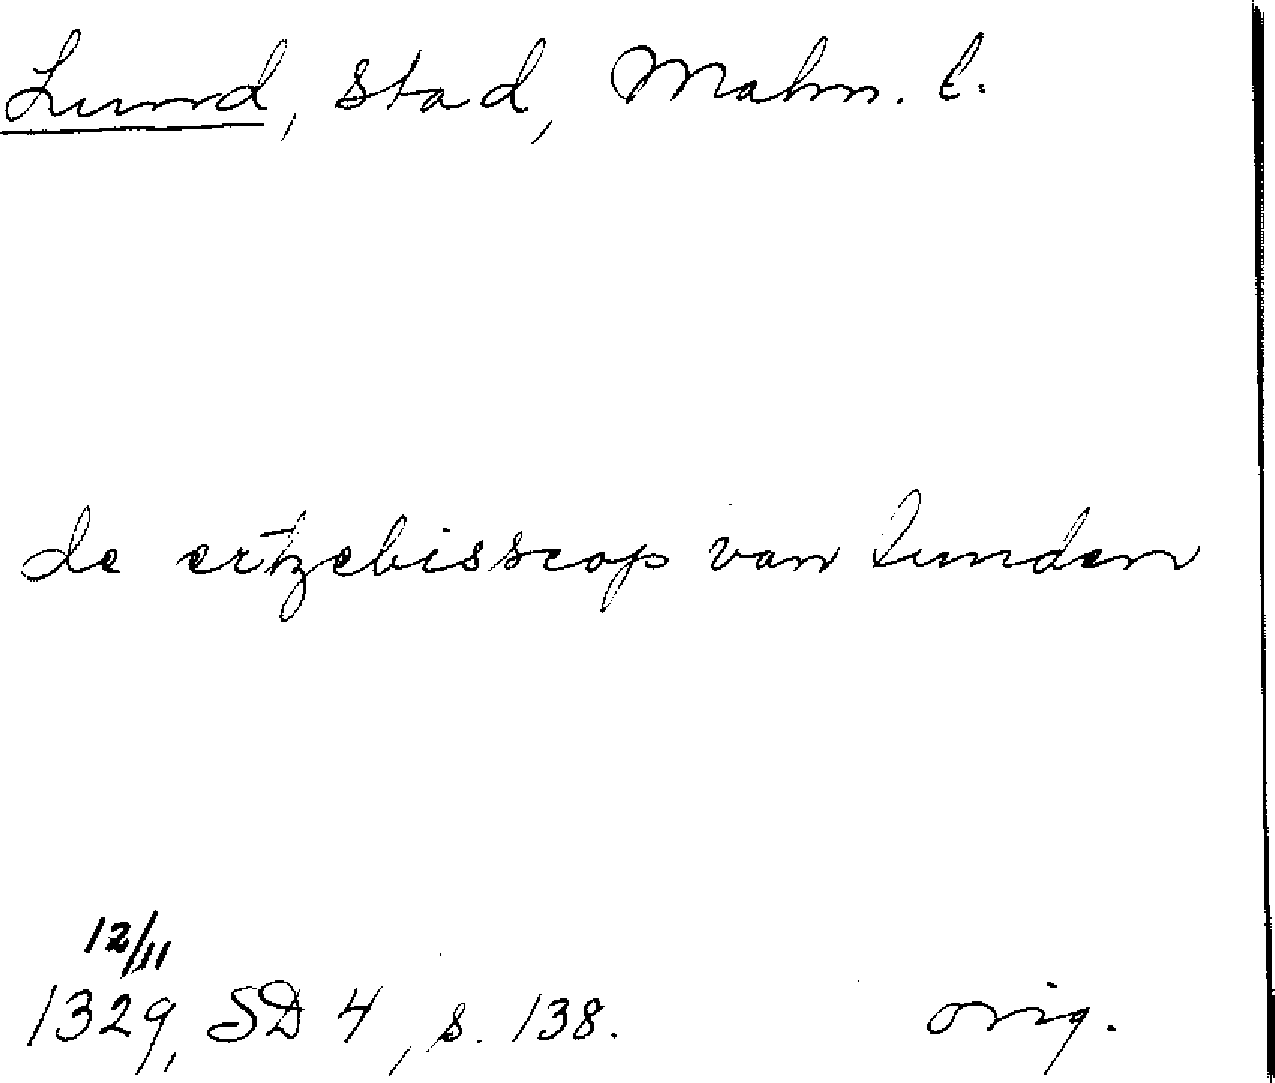 Lund, stad, Malm. l.
de ertzebisscop van Lunden
12/11
1329, SD 4, s. 138. orig.